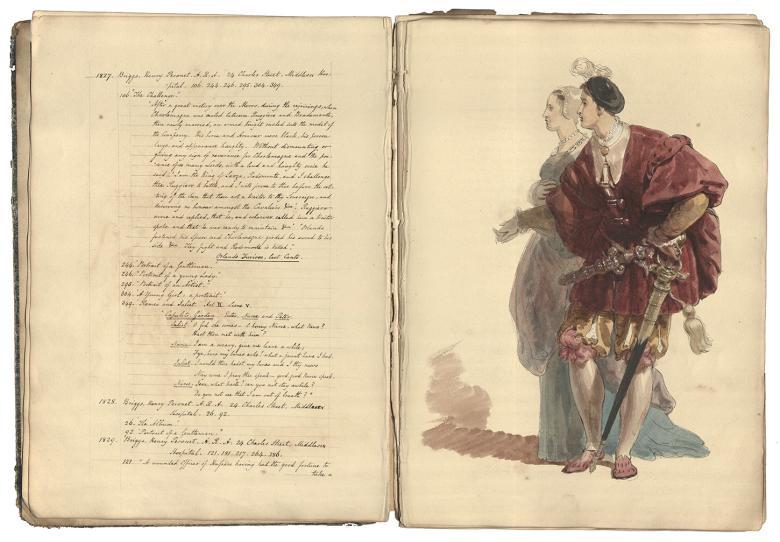 1827. Briggs, Henry Perronet. A.R.A. 24 Charles Street, Middlesex Hos-
pital. 106. 244. 246. 295. 304. 349.
106 "The Challenge."
"After a great victory over the Moors, during the rejoicings, when
Charlemagne was seated between Ruggiero and Bradamante,
then newly married, an armed Knight rushed into the midst of
the Company. His horse and Armour were black, his person
large, and appearance haughty. Without dismounting or
giving any sign of reverence for Charlemagne and the
many Lords, with a loud and haughty voice he
said "I am the King of Sarza, Rodomonte, and I challenge
thee Ruggiero to battle, and I will prove to thee before the set-
ting of the Sun that thou art a traitor to thy Sovereign, and
deserving no honour amongst the Cavaliers &c." Ruggiero
rose and replied, that he, and whoever called him a traitor
spoke and that he was ready to maintain &c." Orlando
fastened his Spurs and Charlemagne girded his sword to his
side &c. They fight and Rodomonte is killed."
Orlando Furioso, last Canto.
244. "Portrait of a Gentleman.
246. "Portrait of a young Lady.
295. "Portrait of an Artist."
304. A Young Girl: a portrait.
349. Romeo and Juliet. Act II Scene V.
"Capulets Garden Enter Nurse and Peter
Juliet. O God she comes - O honey Nurse, what News?
Hast thou met with him?
Nurse. I am a weary, give me leave a while;
Fye, how my bones ache! what a jaunt have I had.
Juliet. I would thou hadst my bones and I thy news
Nay come I pray thee speak - good good Nurse speak.
Nurse. Jesu, what haste! can you not stay awhile?
Do you not see that I am out of breath?"
1828. Briggs, Henry Perronet. A.R.A. 24 Charles Street, Middlesex
Hospital. 26. 92.
26. The
92. "Portrait of a Gentleman."
1829. Briggs, Henry Perronet. A.R.A. 24 Charles Street, Middlesex
Hospital. 121. 181. 217. 264. 296.
121. "A wounded Officer of having had the good fortune to
take a